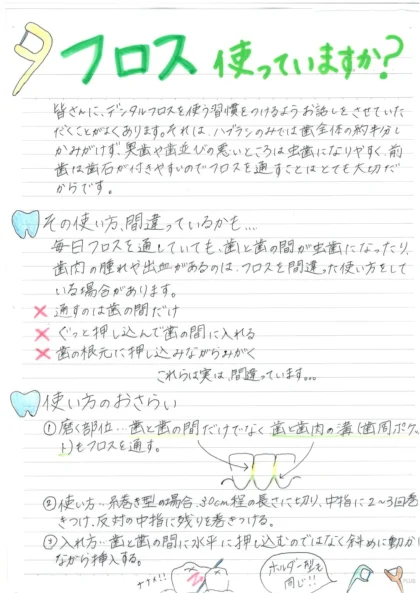 フロス 使っていますか?
皆さんに、デンタルフロスを使う習慣をつけるようお話しをさせていた
だくことがよくあります。それは、ハブラシのみでは歯全体の約半分し
かみがけず、奥歯や歯並びの悪いところは虫歯になりやすく、前
歯は歯石が付きやすいのでフロスを通すことはとても大切だ
からです。
その使い方、間違っているかも…
毎日フロスを通していても、歯と歯の間が虫歯になったり、
歯肉の腫れや出血があるのは、フロスを間違った使い方をして
いる場合があります。
× 通すのは歯の間だけ
× ぐっと押し込んで歯の間に入れる
× 歯の根元に押し込みながらみがく
これらは実は、間違っています…
使い方のおさらい
①磨く部位…歯と歯の間だけでなく 歯と歯肉の溝(歯周ポケッ
ト)もフロスを通す。
②使い方…糸巻き型の場合、30cm程の長さに切り、中指に2〜3回巻
きつけ、反対の中指に残りを巻きつける。
③入れ方…歯と歯の間に水平に押し込むのではなく斜めに動かし
ながら挿入する。
ホルダー型も
同じ!!
PLUS